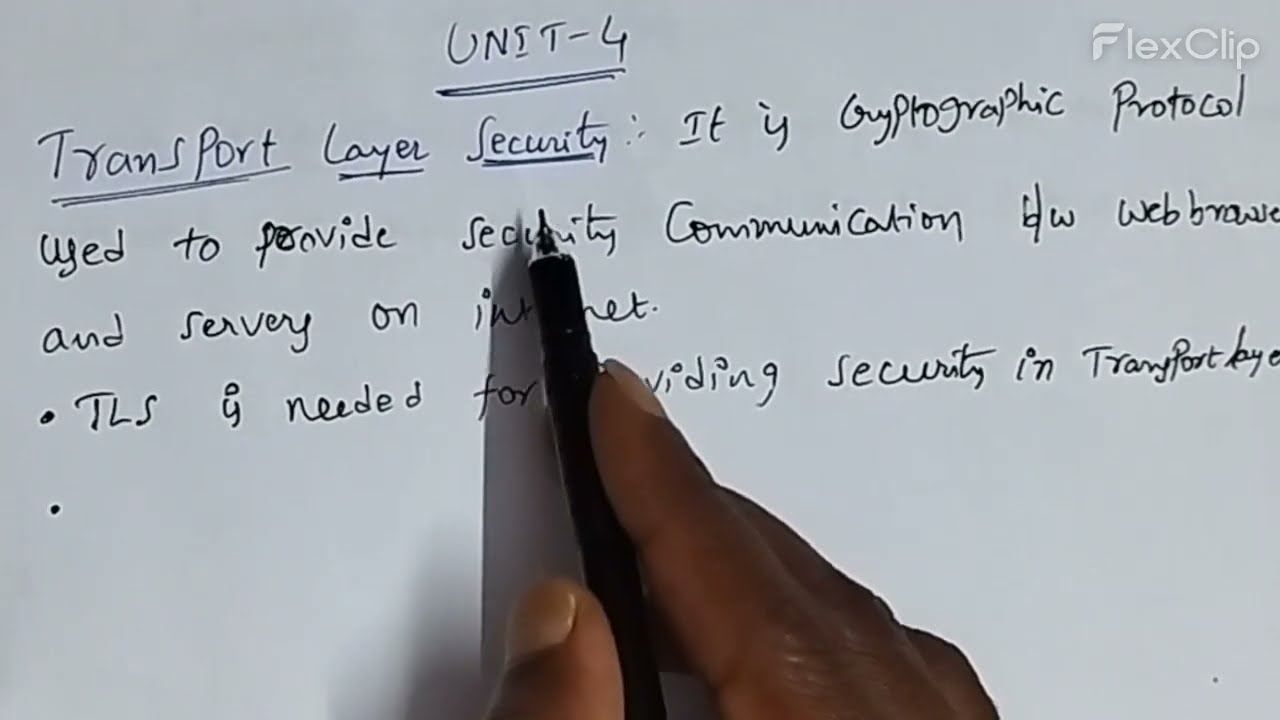 UNIT-4
FlexClip
Transport Layer Security: It is Cryptographic Protocol
used to provide security Communication b/w webbrowse
and servers on internet.
• TLS is needed for providing security in Transport laye
•